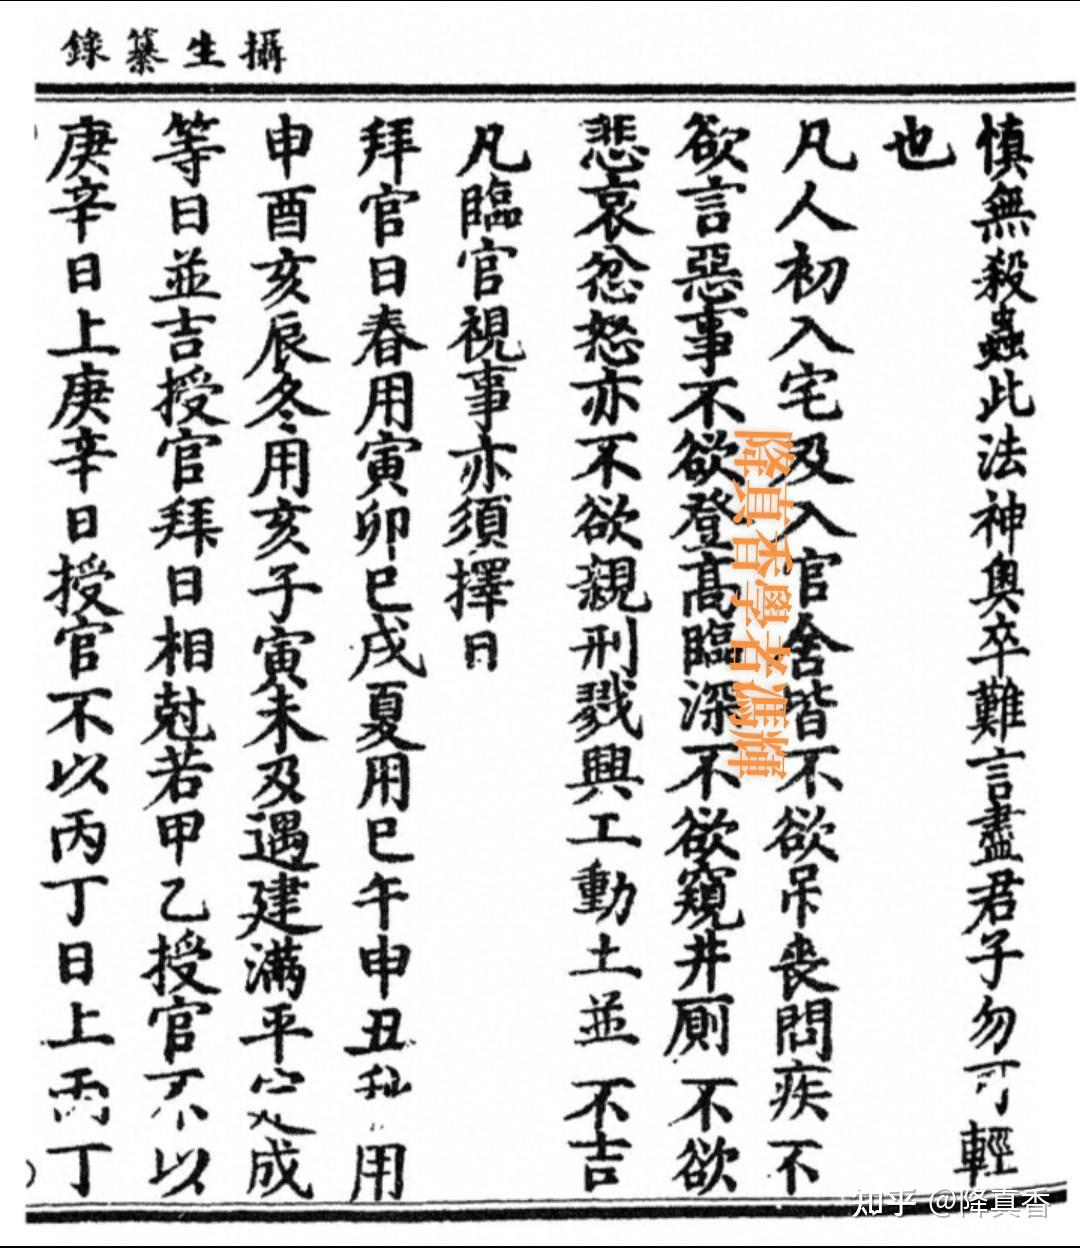 攝生纂錄
慎無殺蟲此法神奧卒難言盡君子勿可輕
也
凡人初入宅及入官舍皆不欲吊喪問疾不
欲言惡事不欲登高臨深不欲窺井厠不欲
悲哀忿怒亦不欲親刑戮興工動土並不吉
凡臨官視事亦須擇日
拜官日春用寅卯巳戌夏用巳午申丑秋用
申酉亥辰冬用亥子寅未及遇建滿平定成
等日並吉授官拜日相尅若甲乙授官不以
庚辛日上庚辛日授官不以丙丁日上丙丁
降真香學者馮輝
知乎 @降真香